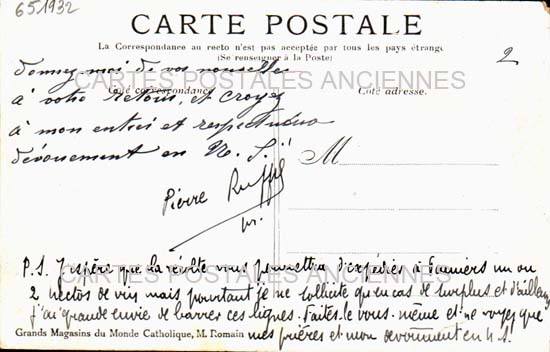 651932
CARTE POSTALE
La Correspondance au recto n'est pas acceptée par tous les pays étrang
(Se renseigner à la Poste)
2
donnez moi de vos nouvelles
CARTES POSTALES ANCIENNES
Côté correspondance
Côté adresse.
à votre retour, et croyez
à mon entier et respectueux
dévouement en N. S.
M
Pierre
CARTES POSTALES ANCIENNES
P.S. J'espère que la récolte vous permettra d'expédier à un ou
2 hectos de vin mais pourtant je ne sollicite qu'en cas de surplus et d'ailleurs
j'ai grande envie de barrer ces lignes. Faites le vous-même et ne voyez que
mes prières et mon dévouement en
Grands Magasins du Monde Catholique, M. Romain